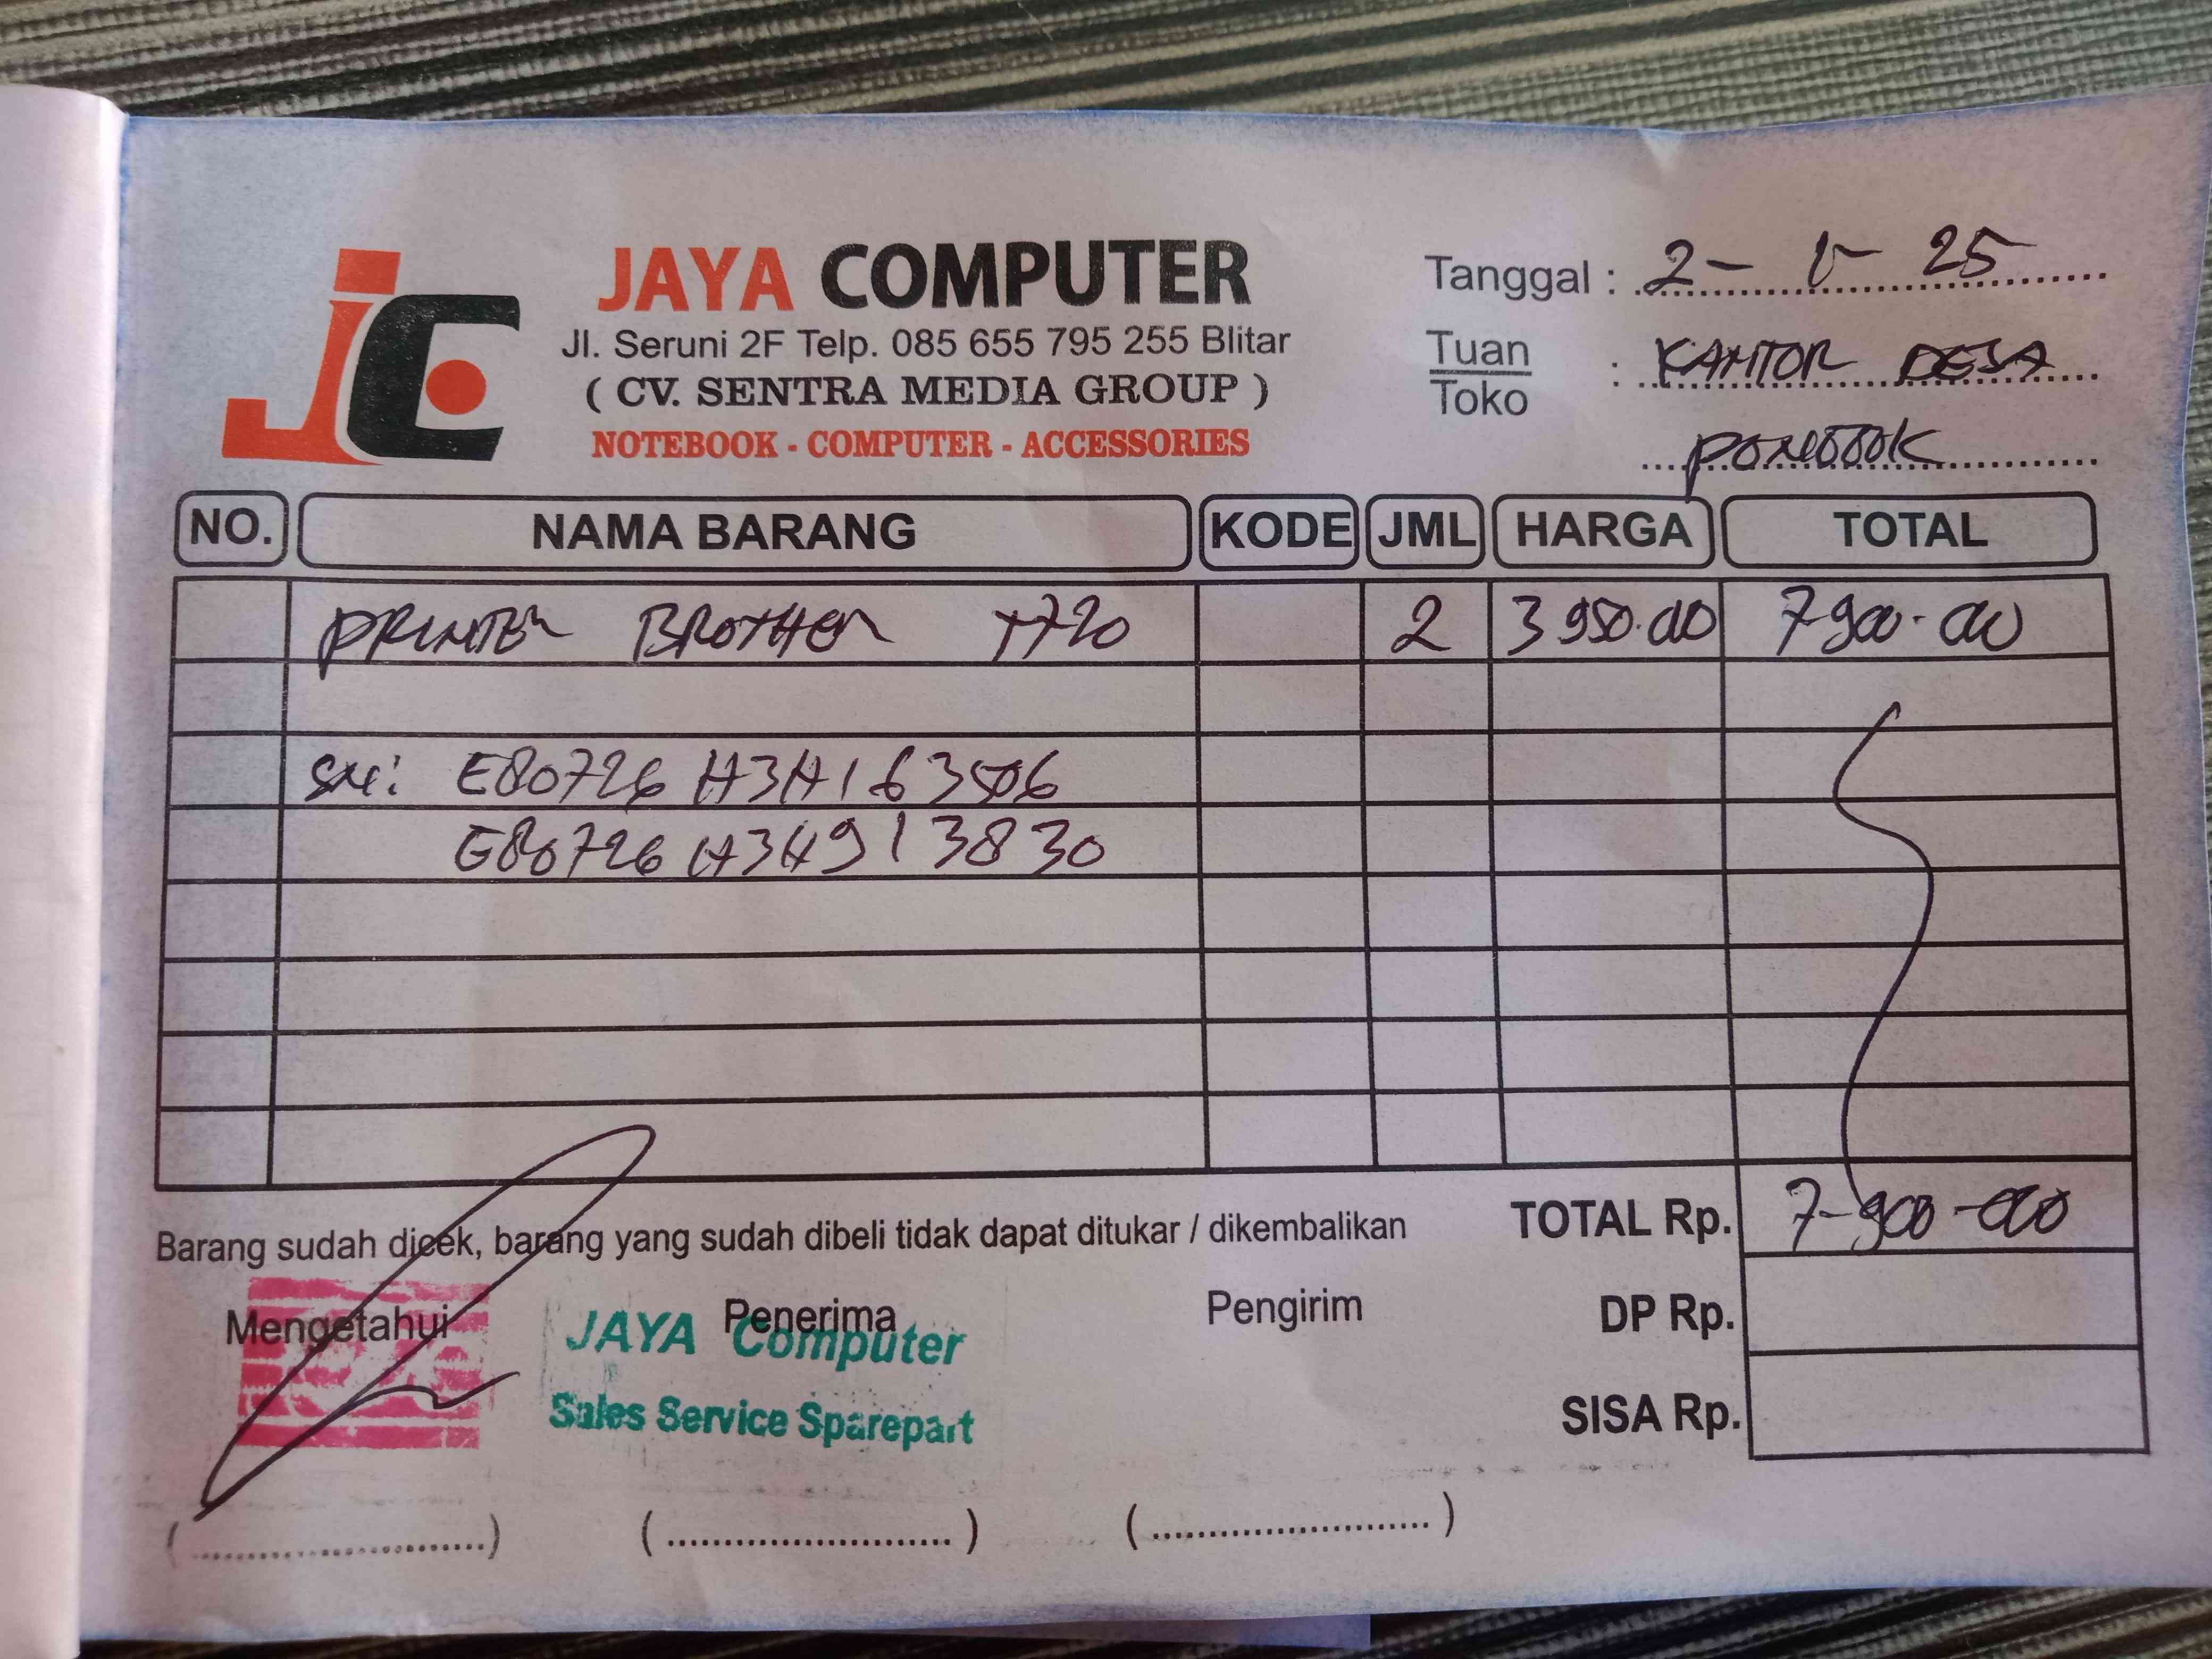 JC
JAYA COMPUTER
Jl. Seruni 2F Telp. 085 655 795 255 Blitar
( CV. SENTRA MEDIA GROUP )
NOTEBOOK - COMPUTER - ACCESSORIES
Tanggal : 2 - V - 25
Tuan
Toko : KANTOR DESA
PONGGOK
NO. NAMA BARANG KODE JML HARGA TOTAL
PRINTER BROTHER T720 2 3 950.000 7 900.000
SN: E80726H3H163506
E80726H3H913830
Barang sudah dicek, barang yang sudah dibeli tidak dapat ditukar / dikembalikan
TOTAL Rp. 7-900-000
Mengetahui Penerima Pengirim
DP Rp.
JAYA Computer
Sales Service Sparepart
SISA Rp.
(..............................) (..............................) (..............................)